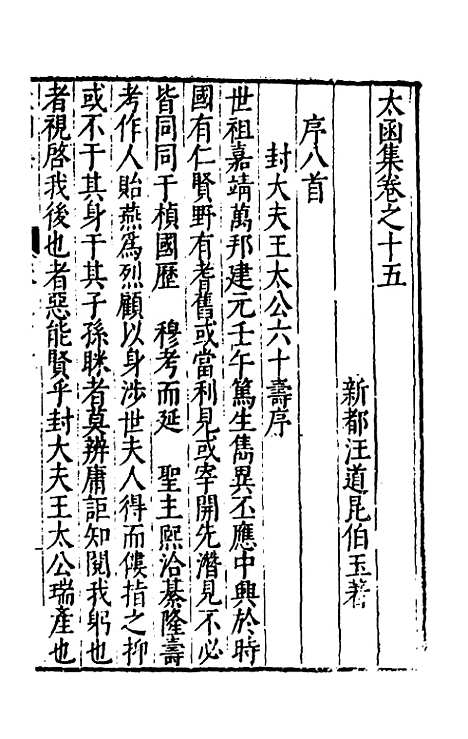 太函集卷之十五
新都汪道昆伯玉著
序八首
封大夫王太公六十壽序
世祖嘉靖萬邦建元壬午篤生雋異丕應中興於時
國有仁賢野有耆舊或當利見或宰開先潛見不必
皆同同于楨國歷　穆考而延　聖主熙洽綦隆壽
考作人貽燕爲烈顧以身涉世夫人得而僂指之抑
或不于其身于其子孫眯者莫辨庸詎知閱我躬也
者視啓我後也者惡能賢乎封大夫王太公瑞產也